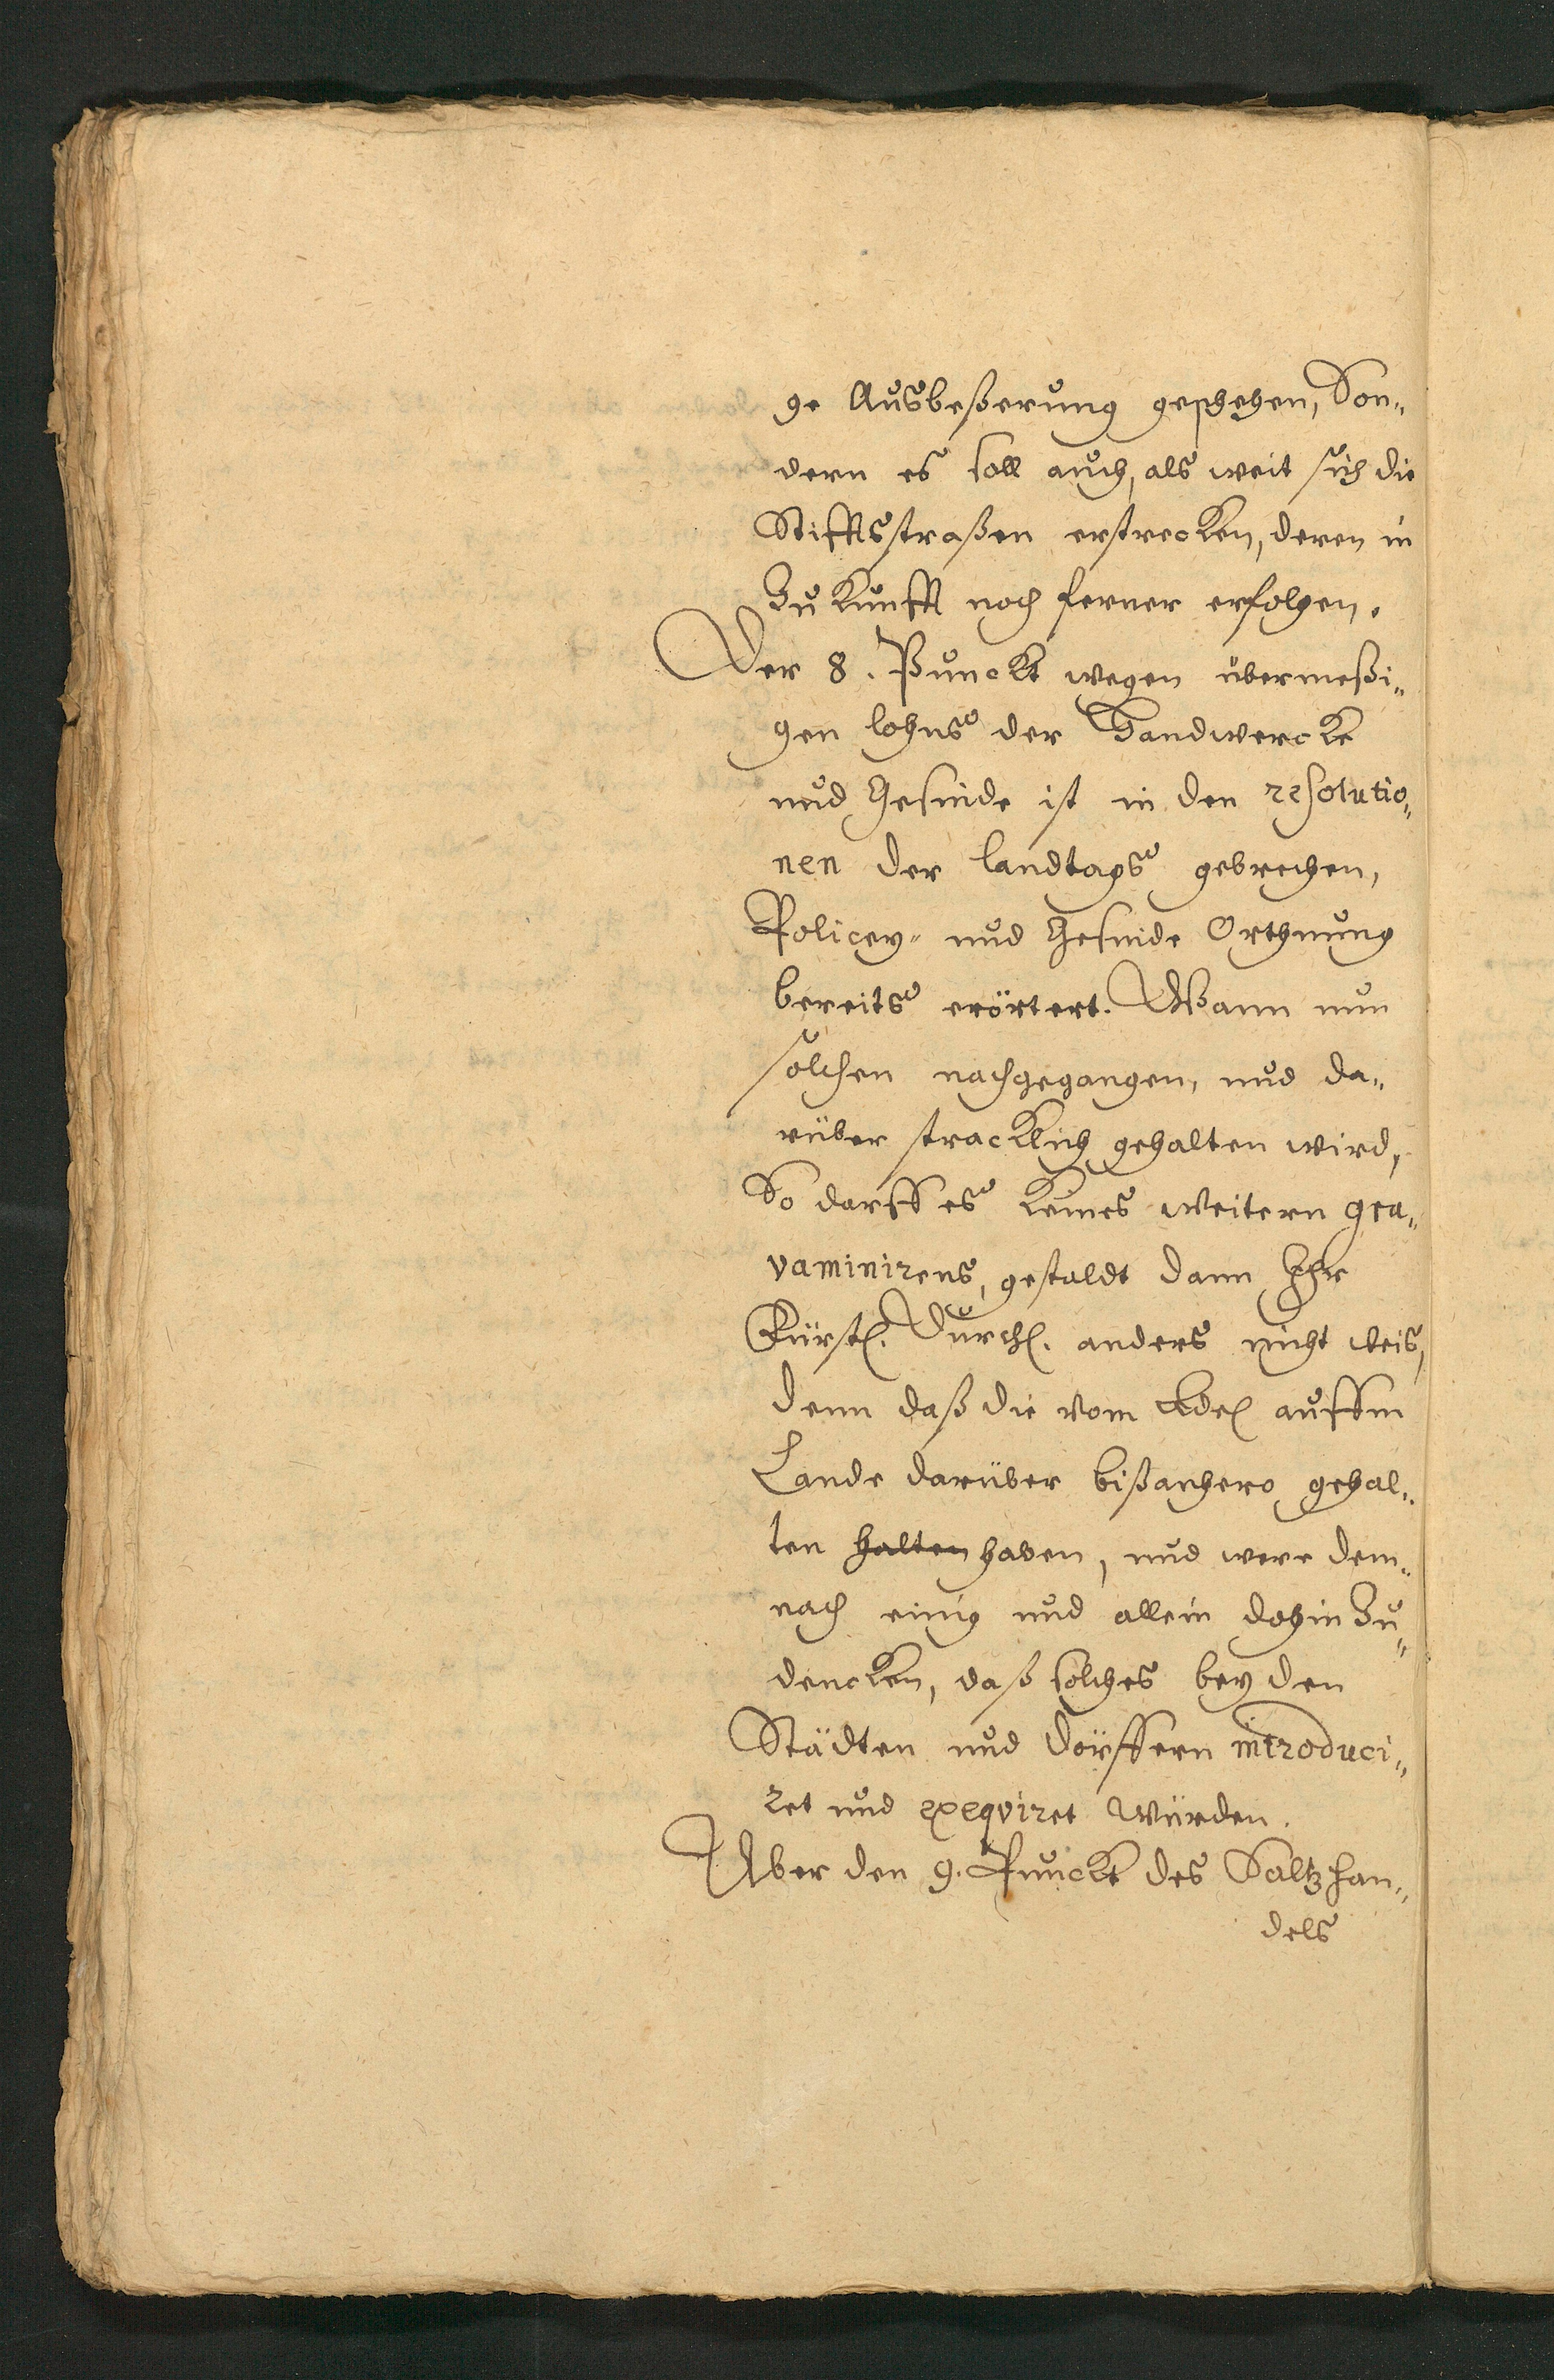 ge Ausbeßerung geschehen, Son„
dern es soll auch, als weit sich die
Stifftsstraßen erstrecken, deren in
Zukunfft noch ferner erfolgen.
Der 8. Punckt wegen übermeßi„
gen lohns der Handwercke
und Gesinde ist in den resolutio„
nen der landtags gebrechen,
Policey- und Gesinde Orthnung
bereits erörtert. Wann nun
solchen nachgegangen, und da„
rüber stracklich gehalten wird,
So darff es keines weitern gra„
vaminirens, gestaldt dann Ihr
Fürstl. Durchl. anders nicht weis,
denn daß die vom Adel auffm
Lande darüber bißanhero gehal„
ten halten haben, und were dem„
nach einig und allein dohin zu„
dencken, daß solches bey den
Städten und Dörffern introduci„
ret und exeqviret würden.
Uber den 9. Punckt des Saltzhan„
dels